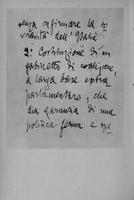 senza infirmare la so
vranità dell'Italia
2° Costituzione di un
gabinetto di coalizione,
a larga base extra
parlamentare, che
dia garanzia di una
politica ferma e